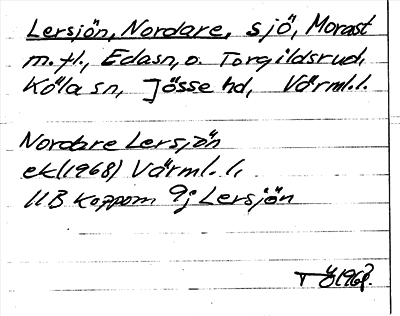 Lersjön, Nordare, sjö, Morast
m.fl., Eda sn, o. Torgildsrud,
Köla sn, Jösse hd, Värml.l.
Nordare Lersjön
ek(1968) Värml.l.
11B Koppom 9j Lersjön
1968.